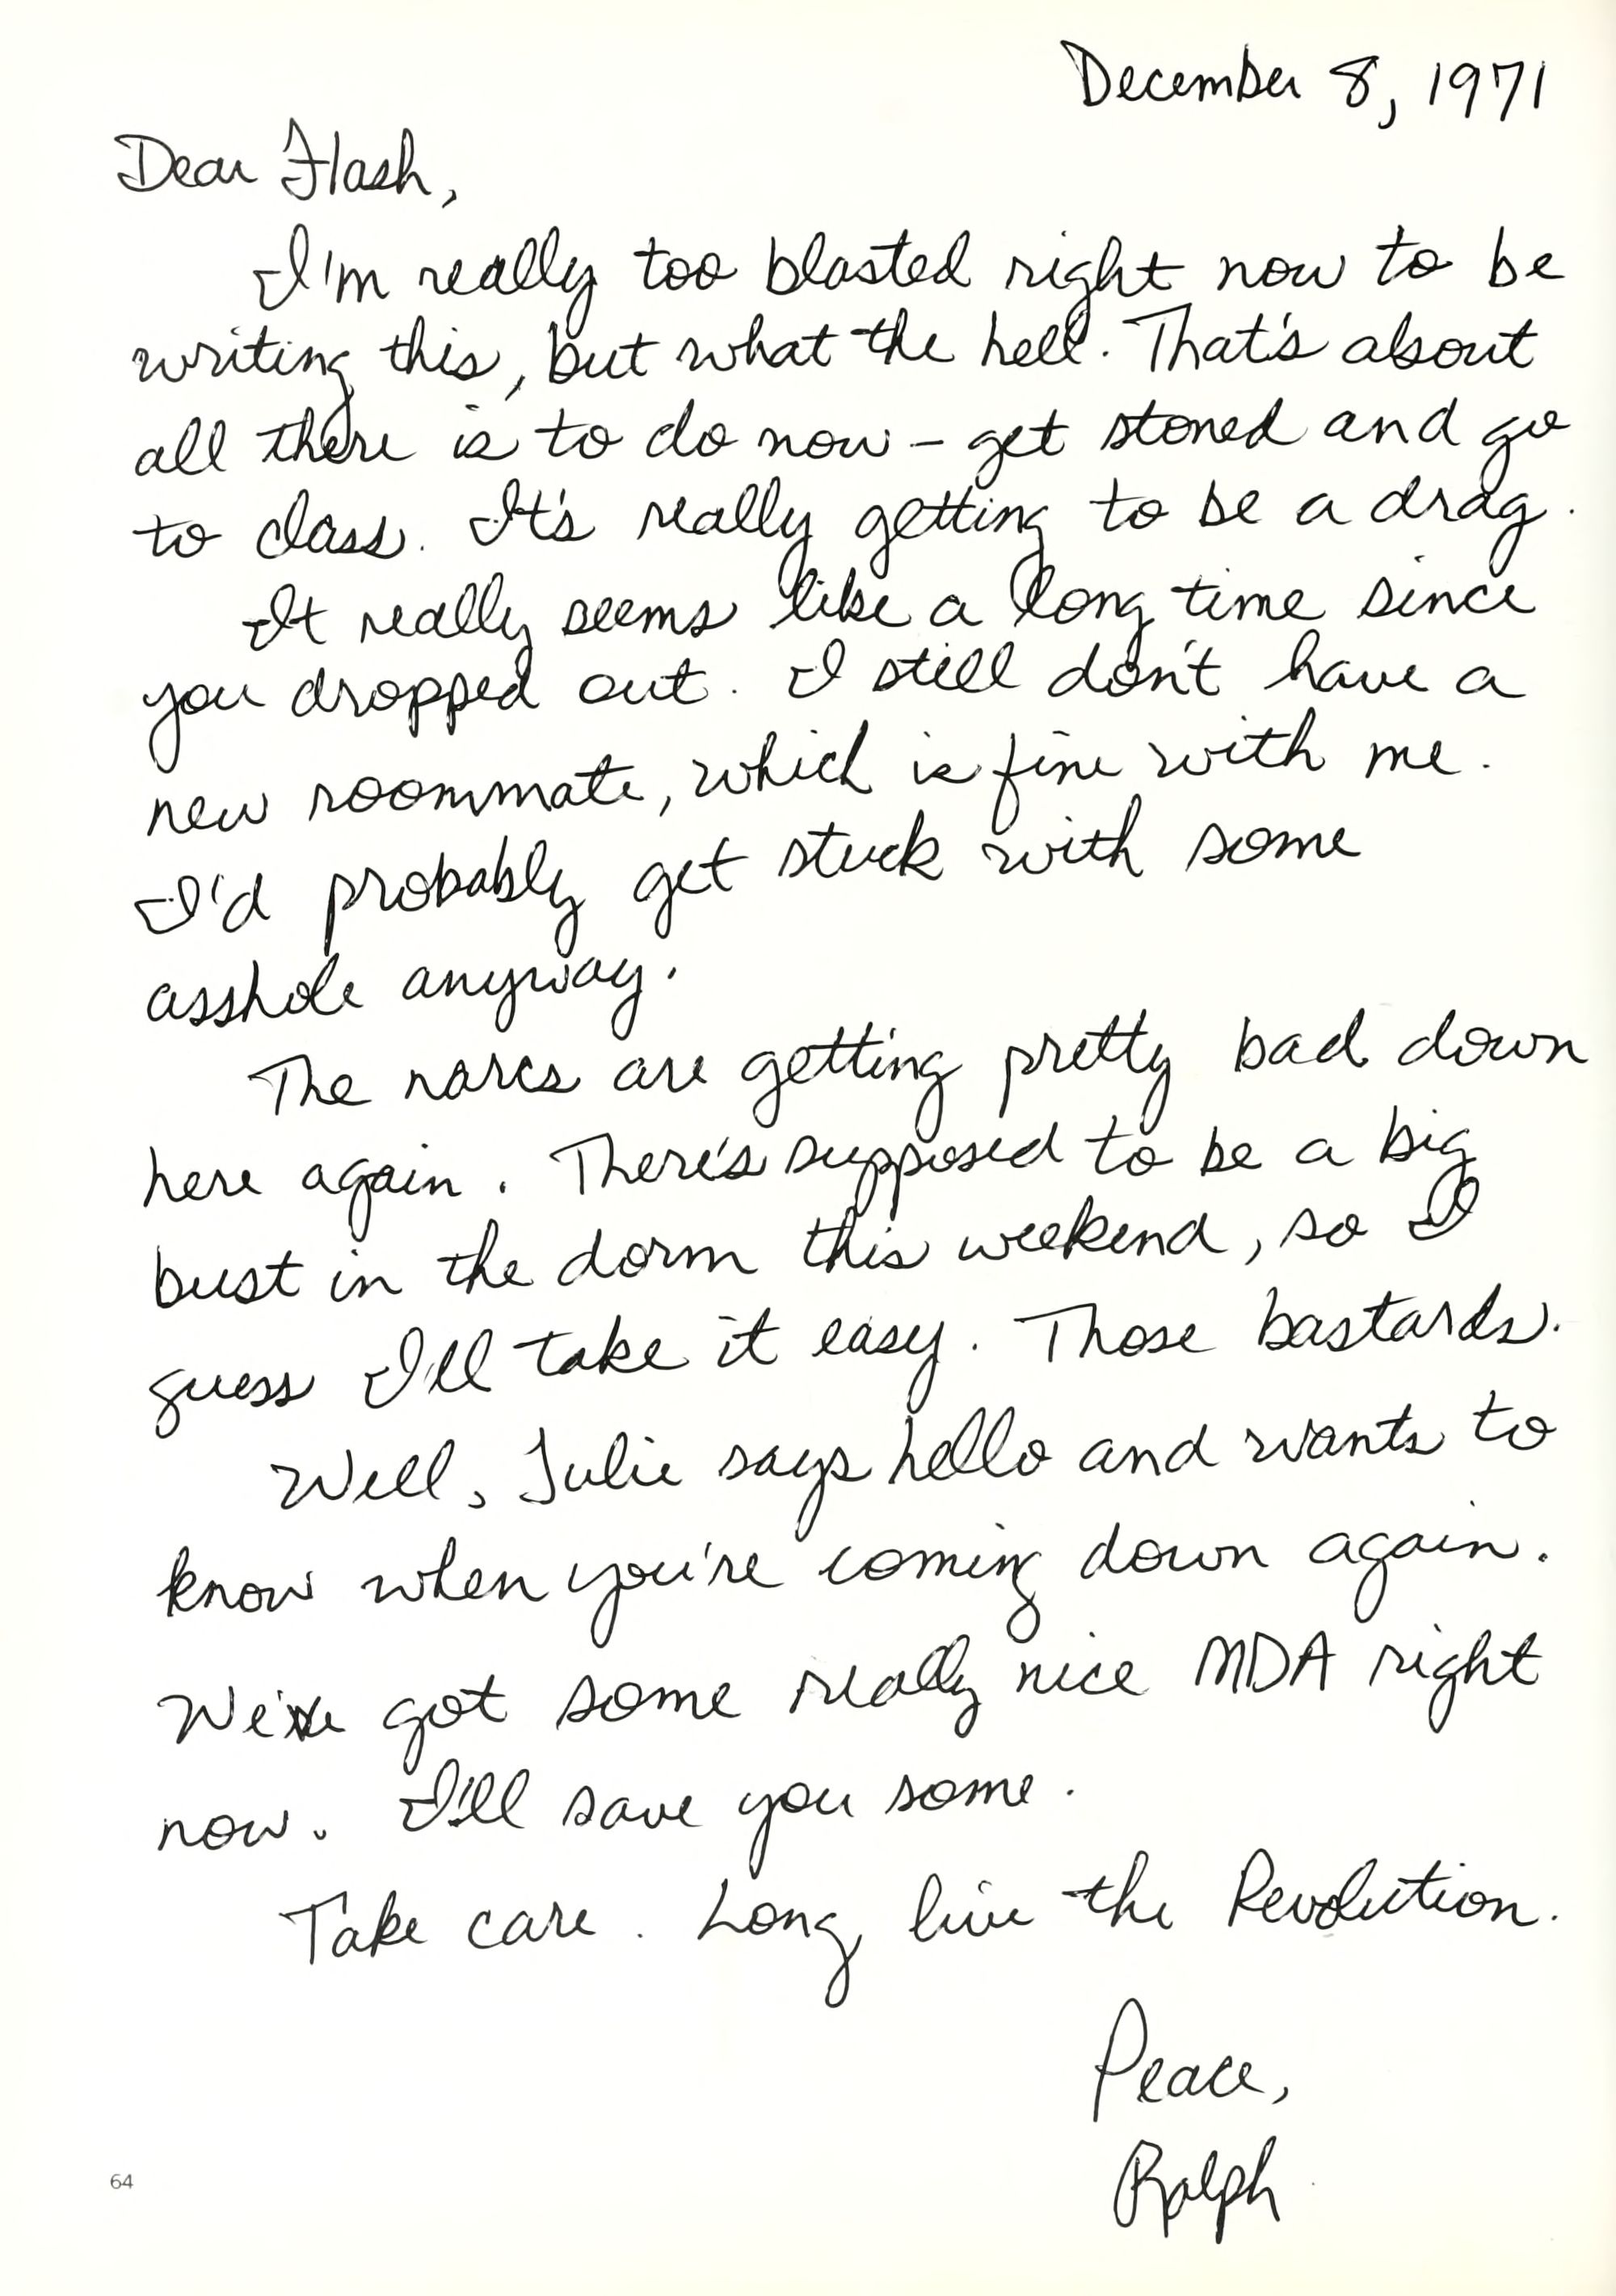 December 8, 1971
Dear Flash,
I'm really too blasted right now to be
writing this, but what the hell. That's about
all there is to do now - get stoned and go
to class. It's really getting to be a drag.
It really seems like a long time since
you dropped out. I still don't have a
new roommate, which is fine with me.
I'd probably get stuck with some
asshole anyway.
The narcs are getting pretty bad down
here again. There's supposed to be a big
bust in the dorm this weekend, so I
guess I'll take it easy. Those bastards.
Well, Julie says hello and wants to
know when you're coming down again.
We've got some really nice MDA right
now. I'll save you some.
Take care. Long live the Revolution.
Peace,
Ralph
64